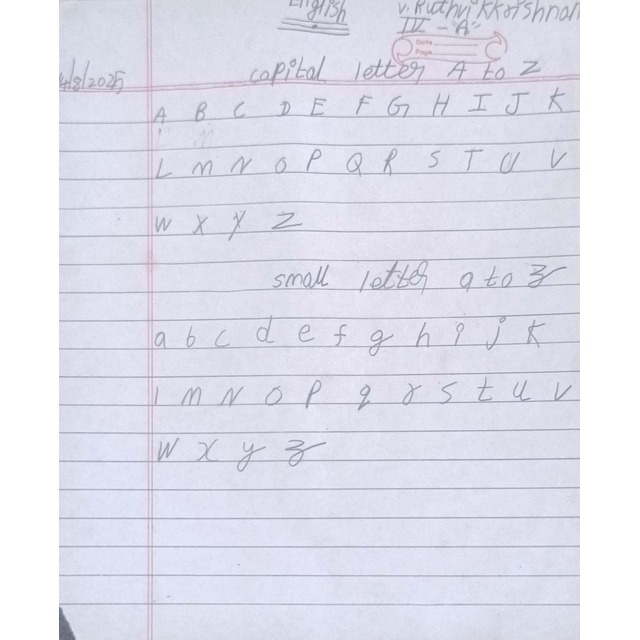 English
V. Ruthvikkrishnan
IV - "A"
Date
Page
4/8/2025
capital letter A to Z
A B C D E F G H I J K
L M N O P Q R S T U V
W X Y Z
small letter a to z
a b c d e f g h i j k
l m N o p q r s t u v
w x y z